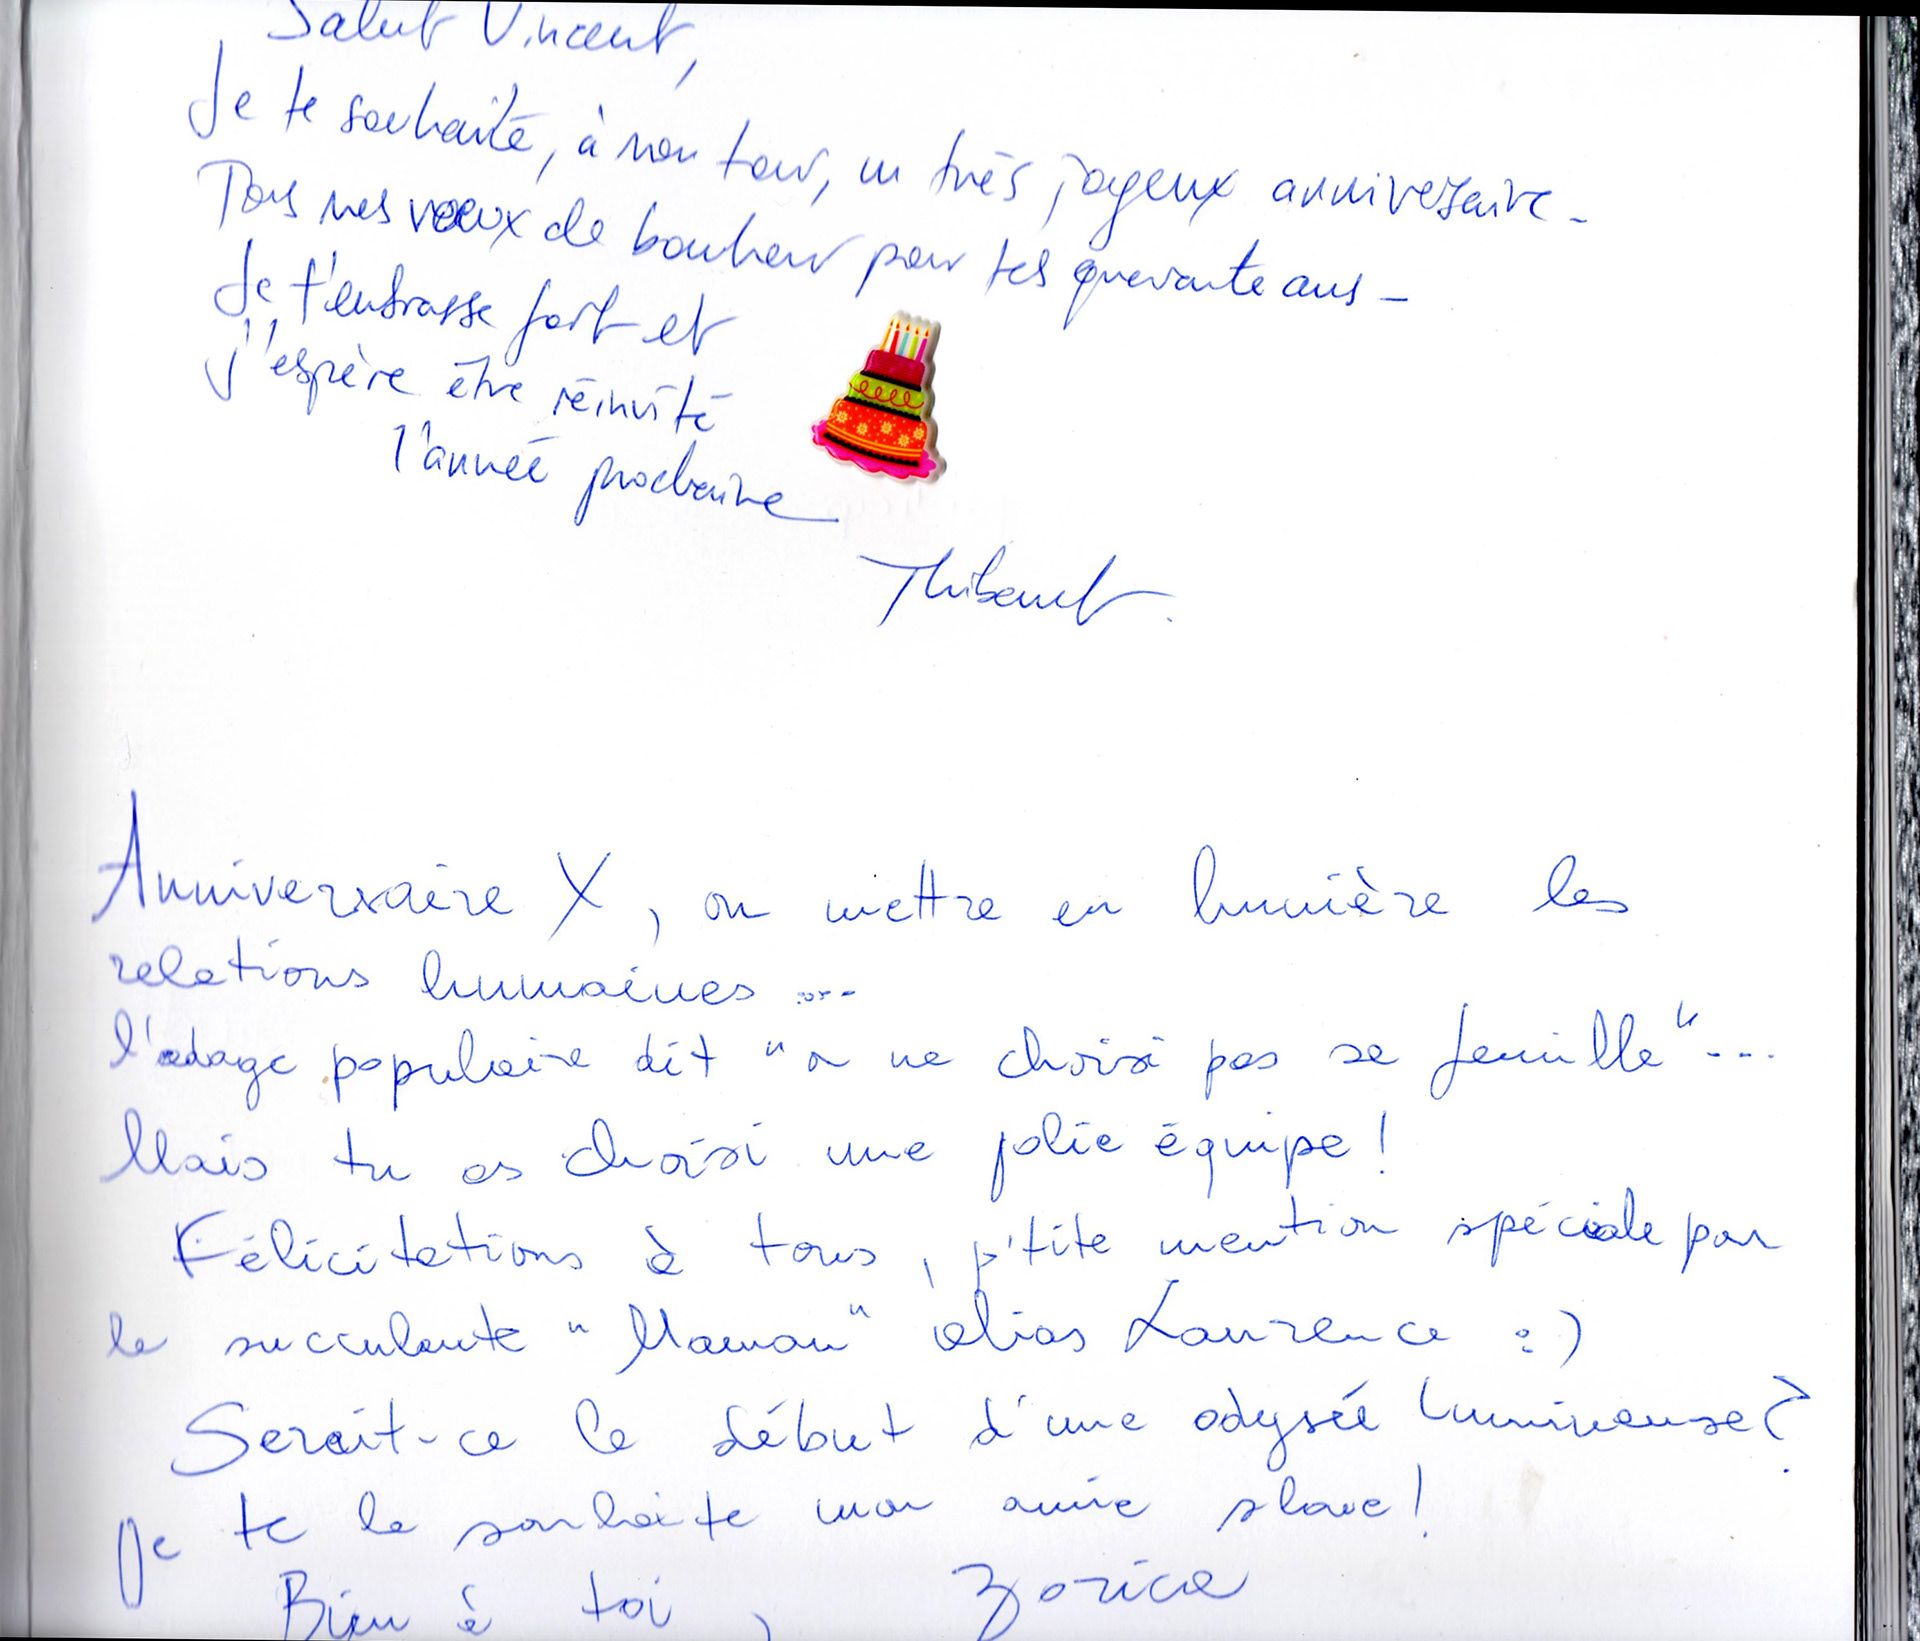 Salut Vincent,
Je te souhaite, à mon tour, un très joyeux anniversaire.
Tous mes voeux de bonheur pour tes quarante ans.
Je t'embrasse fort et
j'espère être réinvité
l'année prochaine
Thibault.
Anniversaire X, ou mettre en lumière les
relations humaines ...
l'adage populaire dit "on ne choisi pas sa famille"...
Mais tu as choisi une jolie équipe!
Félicitations à tous, p'tite mention spéciale pour
la succulente "Maman" alias Laurence :)
Serait-ce le début d'une odysée lumineuse?
Je te le souhaite mon amie slave!
Bien à toi, Zorica